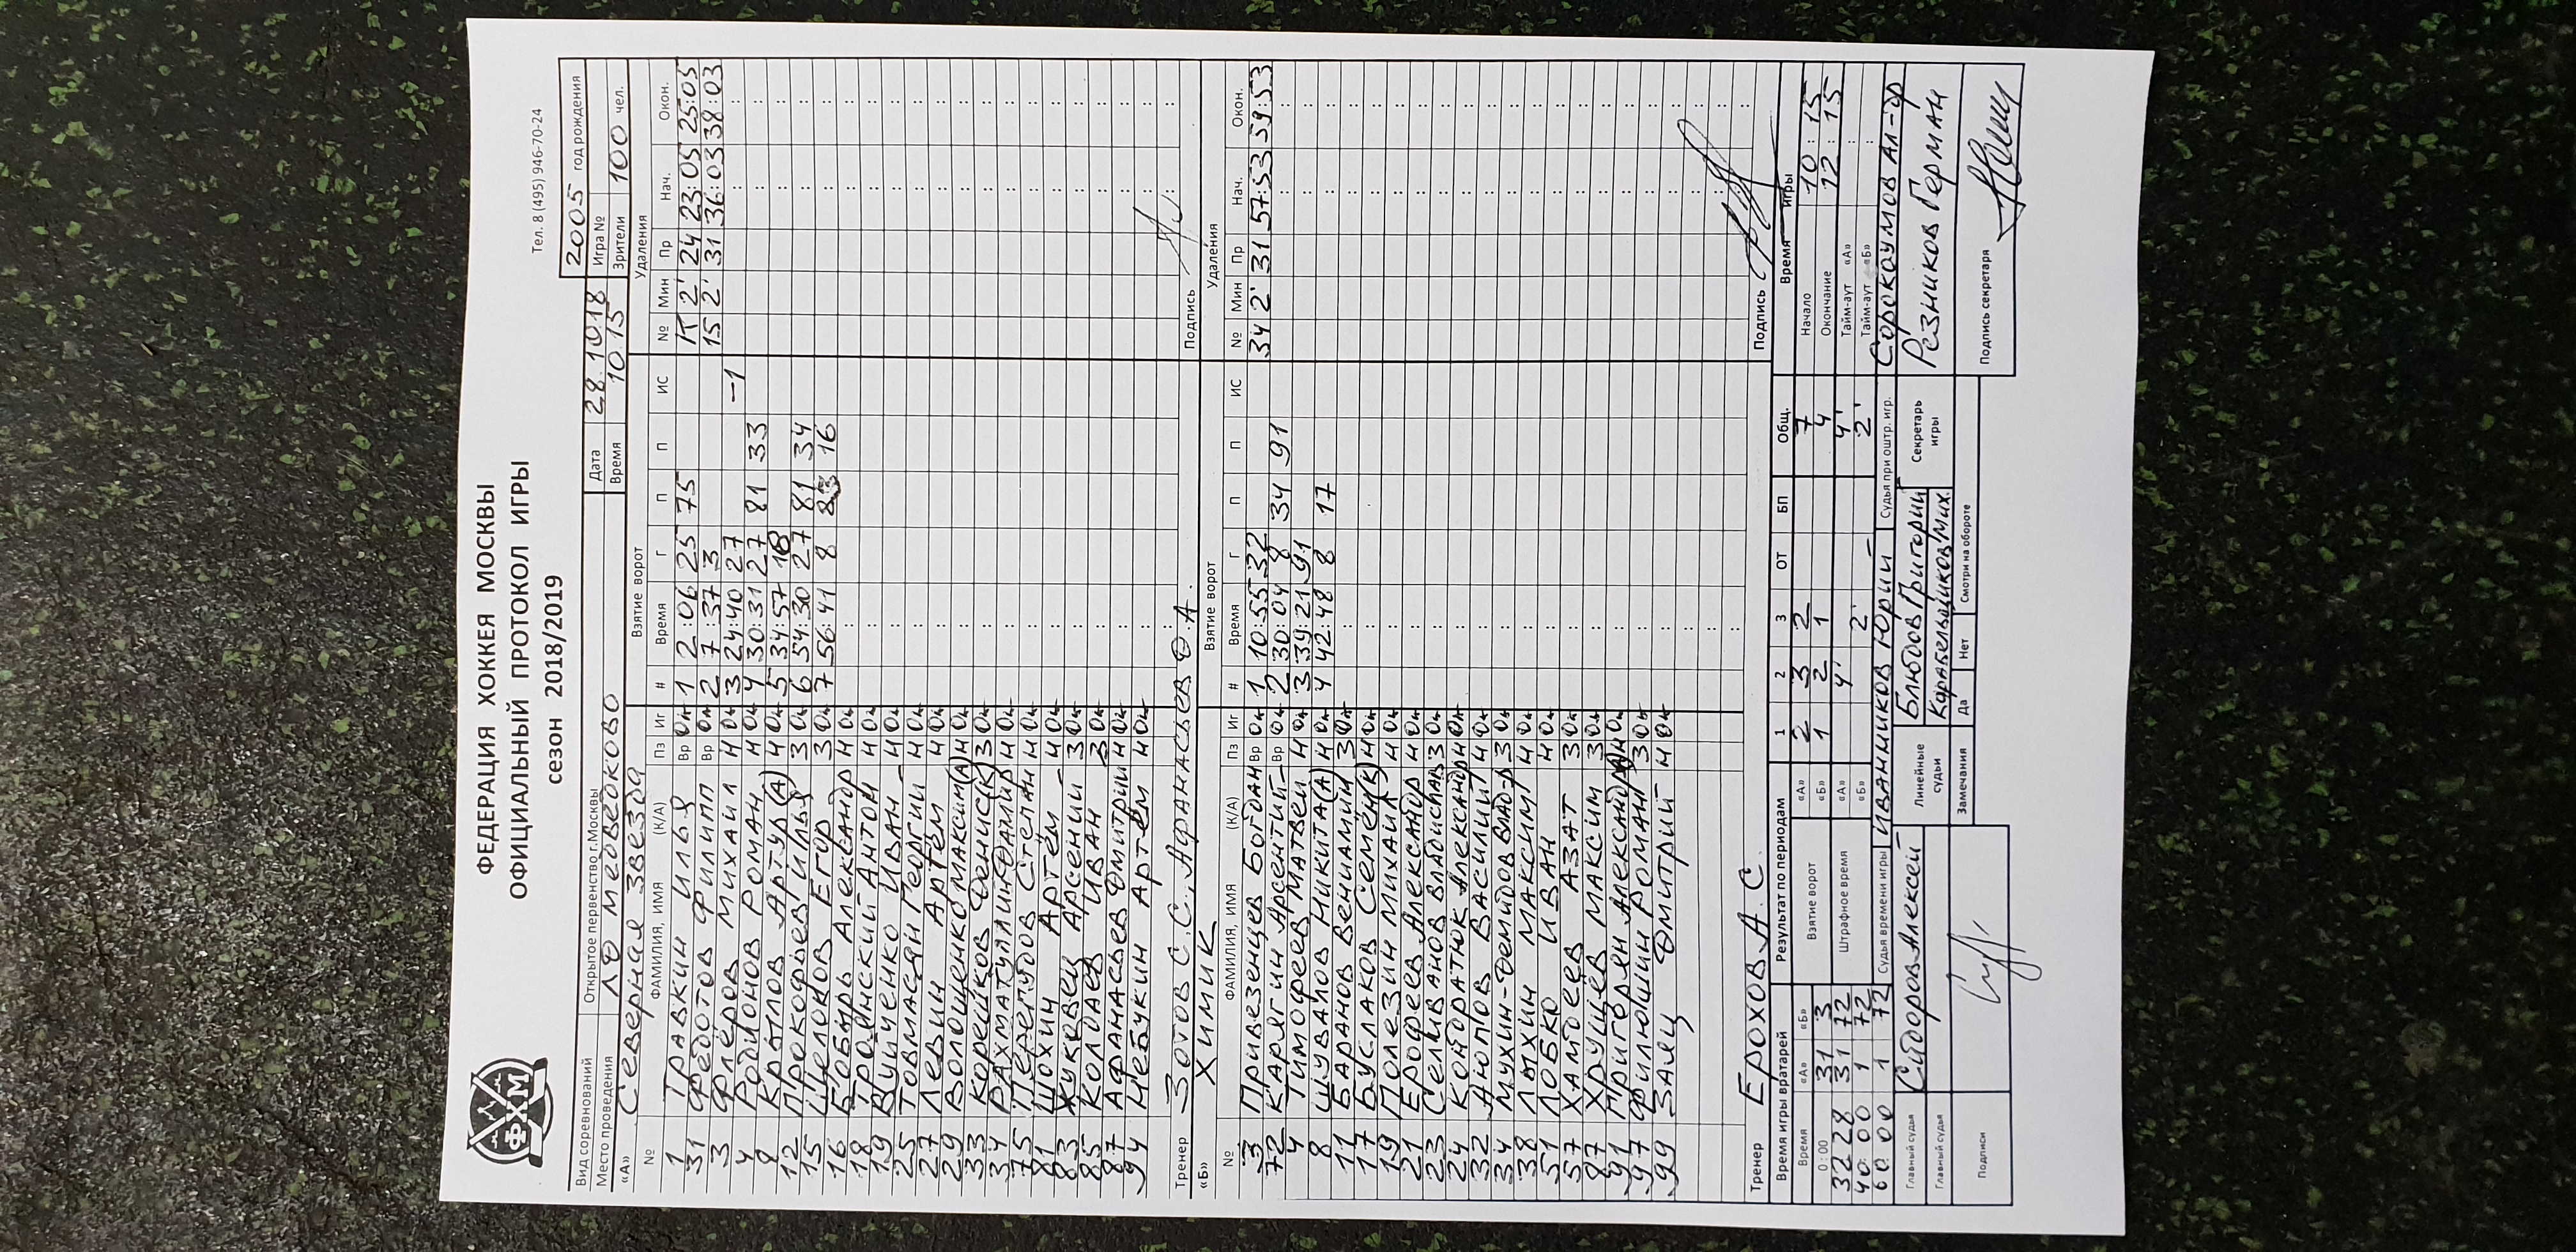 ФЕДЕРАЦИЯ ХОККЕЯ МОСКВЫ
ОФИЦИАЛЬНЫЙ ПРОТОКОЛ ИГРЫ
сезон 2018/2019
Тел. 8 (495) 946-70-24
ФХМ
2005 год рождения
Вид соревнований Открытое первенство г.Москвы Дата 28.10.18 Игра №
Место проведения ЛД Медведково Время 10.15 Зрители 100 чел.
«А» Северная звезда Взятие ворот Удаления
№ ФАМИЛИЯ, ИМЯ (К/А) Пз Иг # Время Г П П ИС № Мин Пр Нач. Окон.
1 Травкин Илья Вр Да 1 2:06 25 75 К 2' 24 23:05 25:05
31 Федотов Филипп Вр Да 2 7:37 3 15 2' 31 36:03 38:03
3 Флёров Михаил Н Да 3 24:40 27 -1
4 Родионов Роман Н Да 4 30:31 27 81 33
8 Крылов Артур (А) Н Да 5 34:57 18
12 Прокофьев Илья З Да 6 54:30 27 81 34
15 Щелоков Егор З Да 7 56:41 8 83 16
16 Бобырь Александр Н Да
18 Троянский Антон Н Да
19 Вуйченко Иван Н Да
25 Товмасян Георгий Н Да
27 Левин Артём Н Да
29 Волощенко Максим (А) Н Да
33 Корейков Денис (К) З Да
34 Рахматуллин Дамир Н Да
75 Перепудов Степан Н Да
81 Шохин Артём Н Да
83 Жуковец Арсений З Да
85 Колдаев Иван З Да
87 Афанасьев Дмитрий Н Да
94 Чебукин Артём Н Да
Тренер Зотов С.С., Афанасьев Д.А. Подпись
«Б» Химик Взятие ворот Удаления
№ ФАМИЛИЯ, ИМЯ (К/А) Пз Иг # Время Г П П ИС № Мин Пр Нач. Окон.
3 Привезенцев Богдан Вр Да 1 10:55 32 34 2' 31 57:53 59:53
72 Карягин Арсентий Вр Да 2 30:04 8 34 91
4 Тимофеев Матвей Н Да 3 39:21 91
8 Шувалов Никита (А) Н Да 4 42:48 8 17
11 Баранов Вениамин З Да
17 Буслаков Семён (К) Н Да
19 Полезин Михаил Н Да
21 Ерофеев Александр Н Да
23 Селиванов Владислав З Да
24 Кондратюк Александр Н Да
32 Аюпов Василий Н Да
34 Мухин-Демидов Влад-р З Да
38 Лыхин Максим Н Да
51 Лобко Иван Н Да
57 Хамбеев Азат З Да
87 Хрущёв Максим З Да
91 Григорян Александр (А) Н Да
97 Филюшин Роман З Да
99 Заяц Дмитрий Н Да
Тренер Ерохов А.С. Подпись
Время игры вратарей Результат по периодам 1 2 3 ОТ БП Общ. Время игры
Время «А» «Б» Взятие ворот «А» 2 3 2 7 Начало 10:15
0:00 31 3 «Б» 1 2 1 4 Окончание 12:15
32 28 31 72 Штрафное время «А» 4' 4' Тайм-аут «А» :
40:00 1 72 «Б» 2' 2' Тайм-аут «Б» :
60:00 1 72 Судья времени игры Иванников Юрий Судья при оштр. игр. Сорокоумов Ал-др
Главный судья Сидоров Алексей Линейные судьи Блюдов Григорий Секретарь игры Резников Герман
Главный судья Карабельщиков Мих.
Подписи Замечания Да Нет Смотри на обороте Подпись секретаря